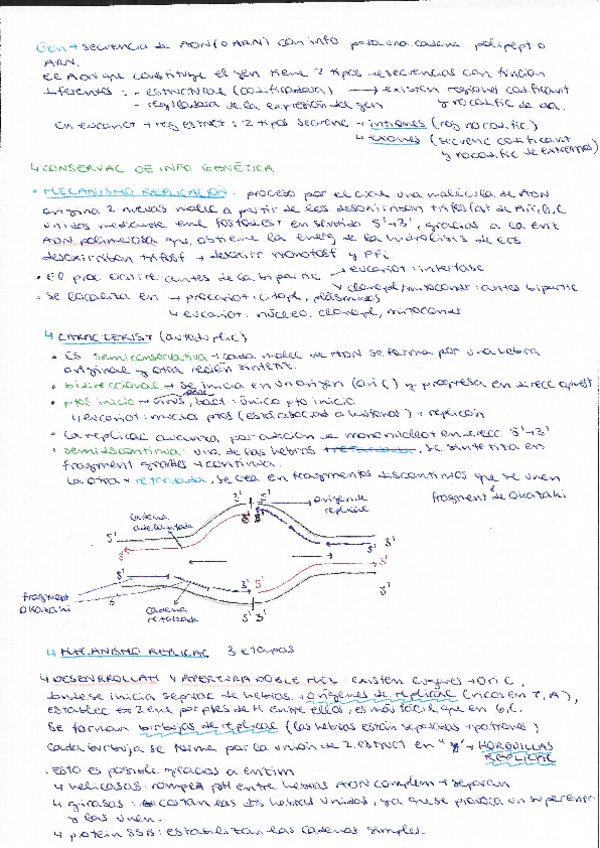 Gen → secuencia de ADN (o ARN) con info para una cadena polipept o
ARN.
El ADN que constituye el gen tiene 2 tipos de secuencias con función
diferentes : - estructural (codificadora) → existen regiones codificant
- reguladora de la expresión del gen y no codific de aa.
En eucariot → reg estruct : 2 tipos secuenc → intrones (reg no codific)
↳ exones (secuenc codificant
y no codific de extremos)
↳ CONSERVAC DE INFO GENÉTICA
• MECANISMO REPLICACIÓN : proceso por el cual una molécula de ADN
origina 2 nuevas molec a partir de los desoxirribon trifosfat de A,T,G,C
unidos mediante enl fosfodiest en sentido 5'→3', gracias a la enz
ADN polimerasa que obtiene la energ de la hidrólisis de los
desoxirribon trifosf → desoxir monofosf y PPi.
• El proc ocurre antes de la bipartic → eucariot : interfase
↘ cloropl/mitocondr : antes bipartic
• Se localiza en → procariot : citopl, plásmidos
↳ eucariot : núcleo, cloropl, mitocondr
↳ CARACTERIST (autoduplic)
• Es semiconservativa → cada molec de ADN se forma por una hebra
original y otra recién sintent.
• bidireccional → se inicia en un origen (ori C) y progresa en direcc opuest
• ptos inicio → virus, bact : único pto inicio
↳ eucariot : muchos ptos (están asociad a histonas) → replicón
• La replicac avanza por adición de mononucleot en direcc 5'→3'
• semidiscontinua : una de las hebras, se sintetiza en
fragment grandes → continua.
La otra → retardada, se crea en fragmentos discontinuos que se unen
fragment de Okazaki
3' 5' → origen de
replicac
cadena
adelantada
5' 3'
3' 5'
5' 3' 5' 3'
fragment
Okazaki
3' cadena
retardada 5' 3' 5'
↳ MECANISMO REPLICAC 3 etapas
↳ DESENRROLLAM Y APERTURA DOBLE HEL : EXISTEN lugares → Ori C,
donde se inicia separac de hebras → orígenes de replicac (ricos en T, A),
establec 2 enl por ptes de H entre ellos, es más fácil que en G,C.
Se forman burbujas de replicac (las hebras están separadas → patrones)
Cada burbuja se forma por la unión de 2 estruct en "Y" → HORQUILLAS
REPLICAC
. Esto es posible gracias a enzim
↳ helicasas : rompen pH entre hebras ADN complem → separan
↳ girasas : cortan las dos hebras unidas, ya que se provoca un superenr
y las unen.
↳ protein SSB : estabilizan las cadenas simples.